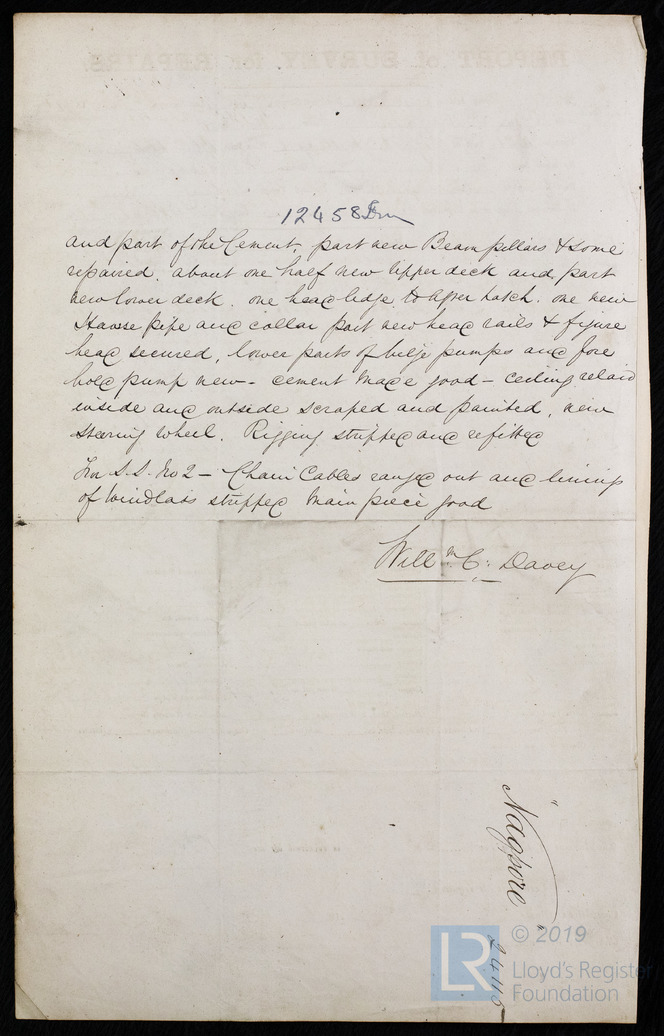 REPORT of SURVEY for REPAIRS
12458 Irn
and part of the Cement, part new Beam pillars & some
repaired, about one half new Upper deck and part
new lower deck, one head ledge to after hatch. one new
Hawse pipe and collar part new head rails & figure
head secured, lower parts of bilge pumps and fore
hold pump new - cement made good - ceiling relaid
inside and outside scraped and painted, new
Steering wheel. Rigging stripped and refitted
For S.S. No 2 - Chain Cables ranged out and lining
of windlass stripped main piece good
Willm C. Davey
"Nagpore"
© 2019
LR
Lloyd's Register
Foundation